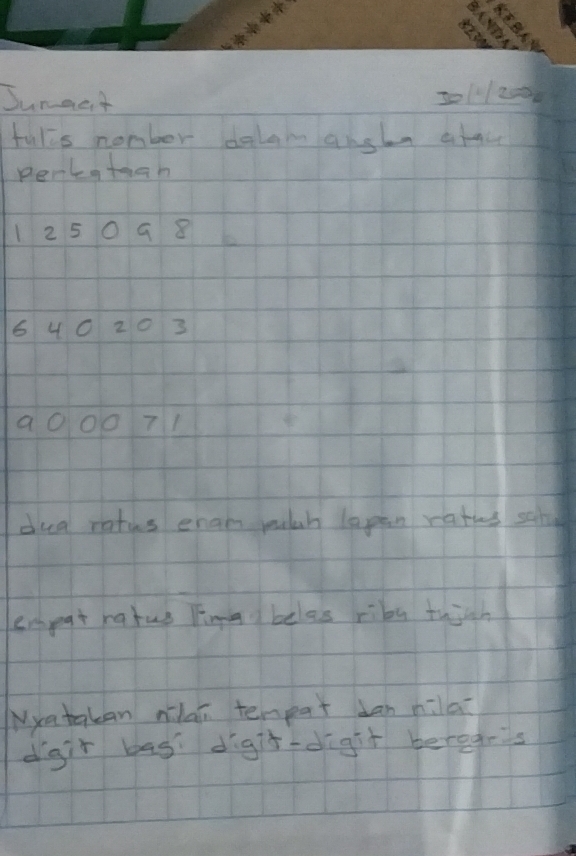 KEBA
BANDA
Jumaat
tulis nombor dalam angka atau
perkataan
1 2 5 0 9 8
6 4 0 2 0 3
9 0 0 0 7 1
dua ratus enam puluh lapan ratus
empat ratus lima belas ribu tujuh
Nyatakan nilai tempat dan nilai
digit bagi digit-digit bergaris